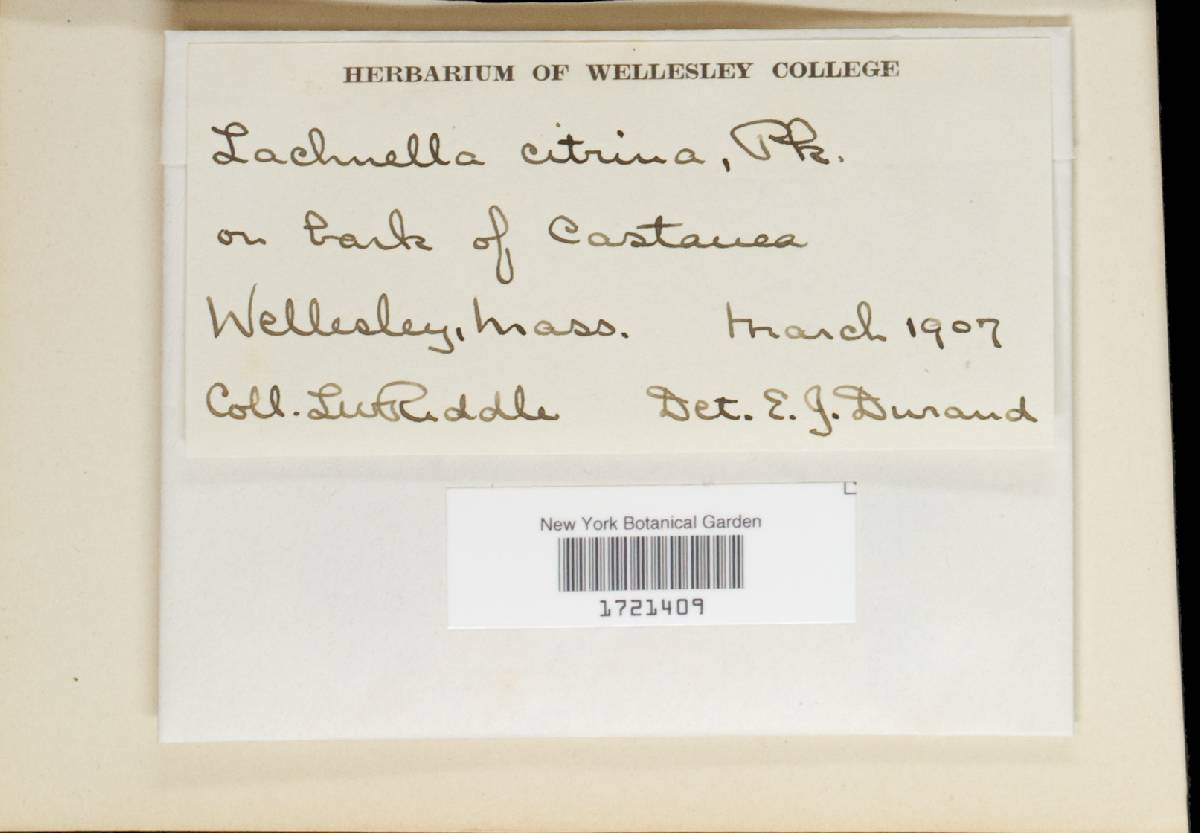 HERBARIUM OF WELLESLEY COLLEGE
Lachnella citrina, Pk.
on bark of Castanea
Wellesley, Mass. March 1907
Coll. LWRiddle Det. E. J. Durand
New York Botanical Garden
1721409